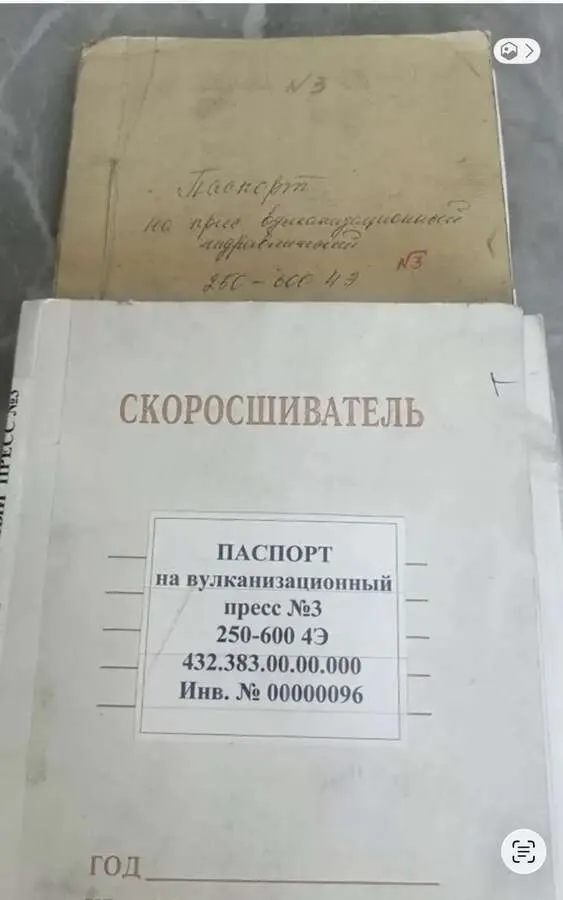 N3
Паспорт
на пресс вулканизационный
гидравлический
N3
250-600 4Э
СКОРОСШИВАТЕЛЬ
ПРЕСС №3
ПАСПОРТ
на вулканизационный
пресс №3
250-600 4Э
432.383.00.00.000
Инв. № 00000096
ГОД